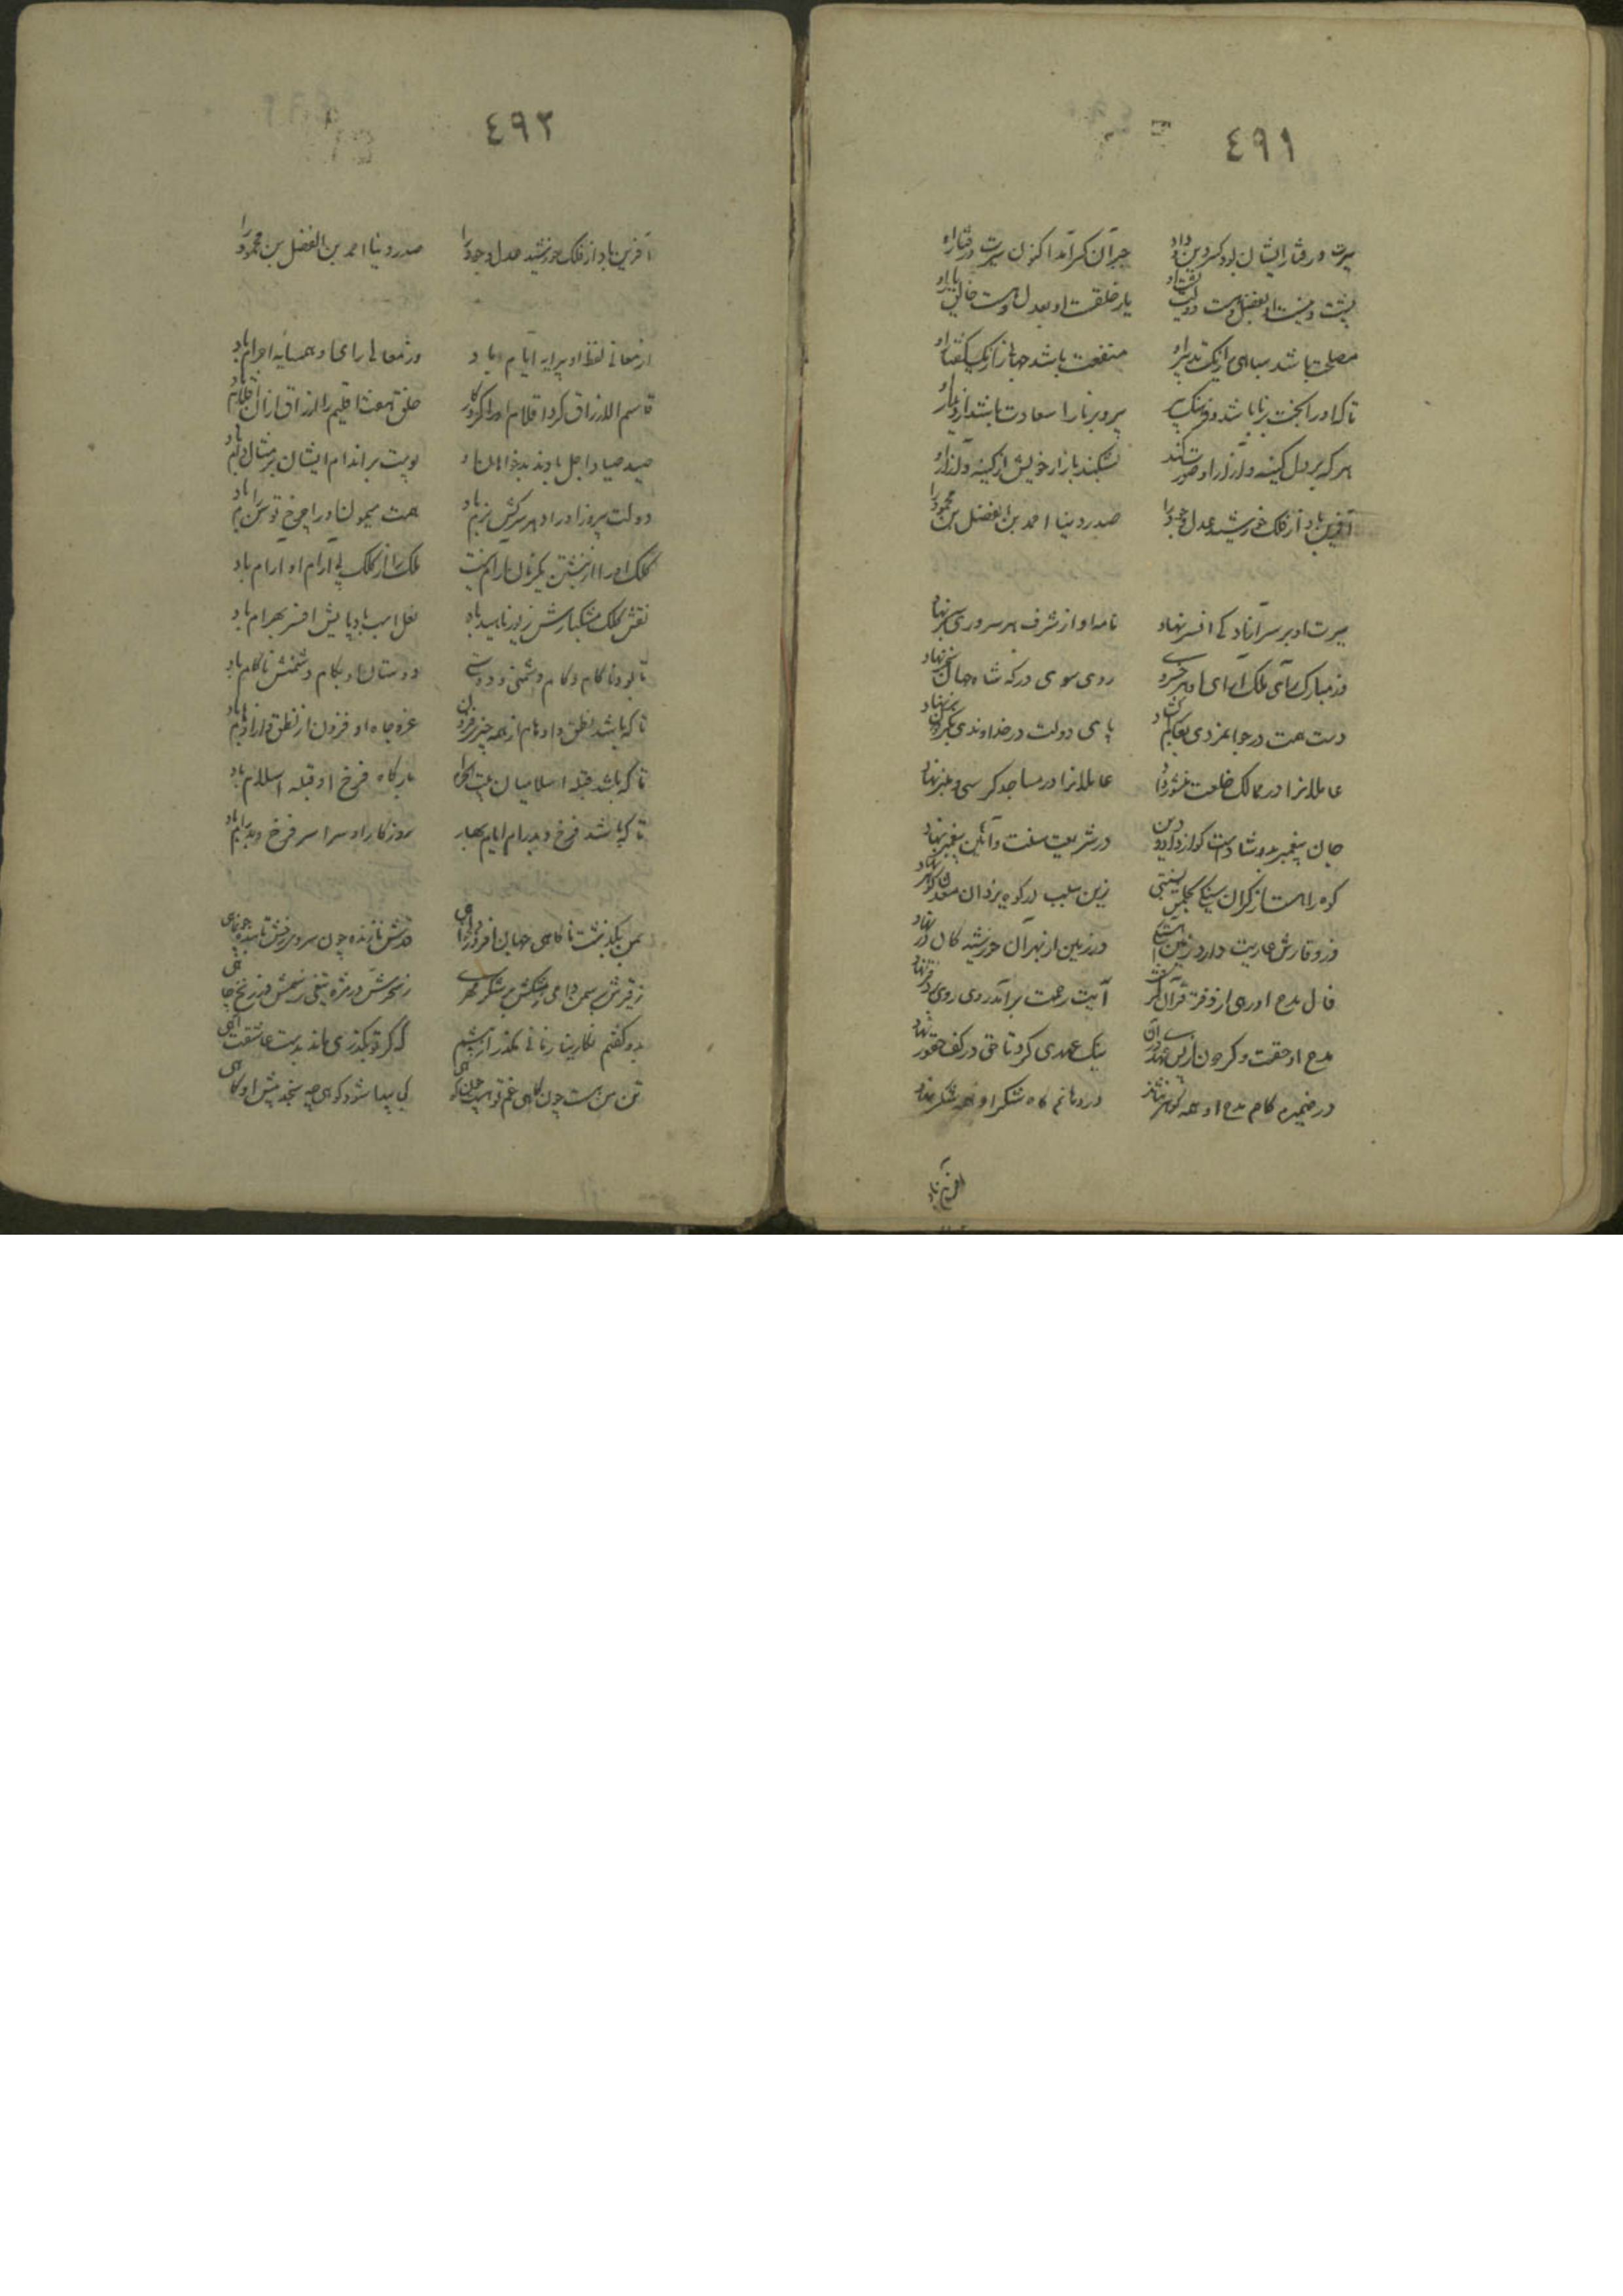 ٤٩١
سیرت و رفتار ایشان بود کسر دین و داد
جبر آن کسر آمد اکنون سیرت و رفتار او
پشت دولت
یار خلقست او بعدل و هست خالق یار او
مصلحت باشد سپاهی را یک تدبیر او
منفعت باشد جهانی را ز یک گفتار او
تا که او را بخت برنا باشد و فرهنگ پیر
پیر و برنا را سعادت باشد از دیدار او
هر که بر دل کینه و آزار او صورت کند
بشکند بازار خویش از کینه و آزار او
آفرین باد از فلک خورشید عدل و جود را
صدر دنیا احمد بن الفضل بن محمود را
سیرت او بر سر آزادگی افسر نهاد
نامه او از شرف هر سروری بر سر نهاد
وز مبارک رای ملک آرای او هر خسروی
روی سوی درگه شاه جهان سنجر نهاد
دست همت در جوانمردی
پای دولت در خداوندی
عاملانرا در ممالک خلعت و منشور داد
عالمانرا در مساجد کرسی و منبر نهاد
جان پیغمبر بدو شادست کو از داد و دین
در شریعت سنت و آئین پیغمبر نهاد
کوه را هست از گران سنگی بحلمش نسبتی
زین سبب در کوه یزدان معدن گوهر نهاد
وز وقارش عاریت دارد زمین
در زمین از بهر آن خورشید کان زر نهاد
فال مدح او رهی از دفتر قرآن گرفت
آیت رحمت برآمد روی بر دفتر نهاد
مدح او حقست و گردون از پس
نیک عهدی کرد تا حق در کف حقور نهاد
در ضمیرم گاه مدح او همه گوهر نشاند
در دهانم گاه شکر او همه شکر نهاد
آفرین باد
٤٩٢
آفرین باد از فلک خورشید عدل و جود را
صدر دنیا احمد بن الفضل بن محمود را
از معانی لفظ او پیرایه ایام باد
وز معالی رای او همسایه اجرام باد
قاسم الارزاق کرد اقلام او را کردگار
خلق هفت اقلیم را ارزاق از آن اقلام باد
صید صیاد اجل بادند بدخواهان او
پوست بر اندام ایشان بر مثال دام باد
دولت پیروز او را دهر سرکش نرم باد
همت میمون او را چرخ توسن رام باد
کلک او را از نبشتن یکزمان آرام نیست
ملک را از کلک بی آرام او آرام باد
نقش کلک مشکبارش زیور ناهید باد
نعل اسب بادپایش افسر بهرام باد
تا بود ناکام و کام و دشمنی و دوستی
دوستان او بکام و دشمنش ناکام باد
تا که باشد نطق و اوهام از همه چیز فزون
عز و جاه او فزون از نطق و از اوهام باد
تا که باشد قبله اسلامیان بیت الحرام
بارگاه فرخ او قبله اسلام باد
تا که باشد فرخ و پدرام ایام بهار
روزگار او سراسر فرخ و پدرام باد
بمن بگذشت ناگاهی جهان افروز
قدش نازنده چون سرو و رخش تابنده چون ماهی
بدو گفتم نگارینا زمانی مگذر از پیشم
که گر تو بگذری ماند بدست عاشقت آهی
تن من هست چون کاهی غم تو هست چون کوهی
کی پیدا شود کوهی چو سنجد پیش او کاهی